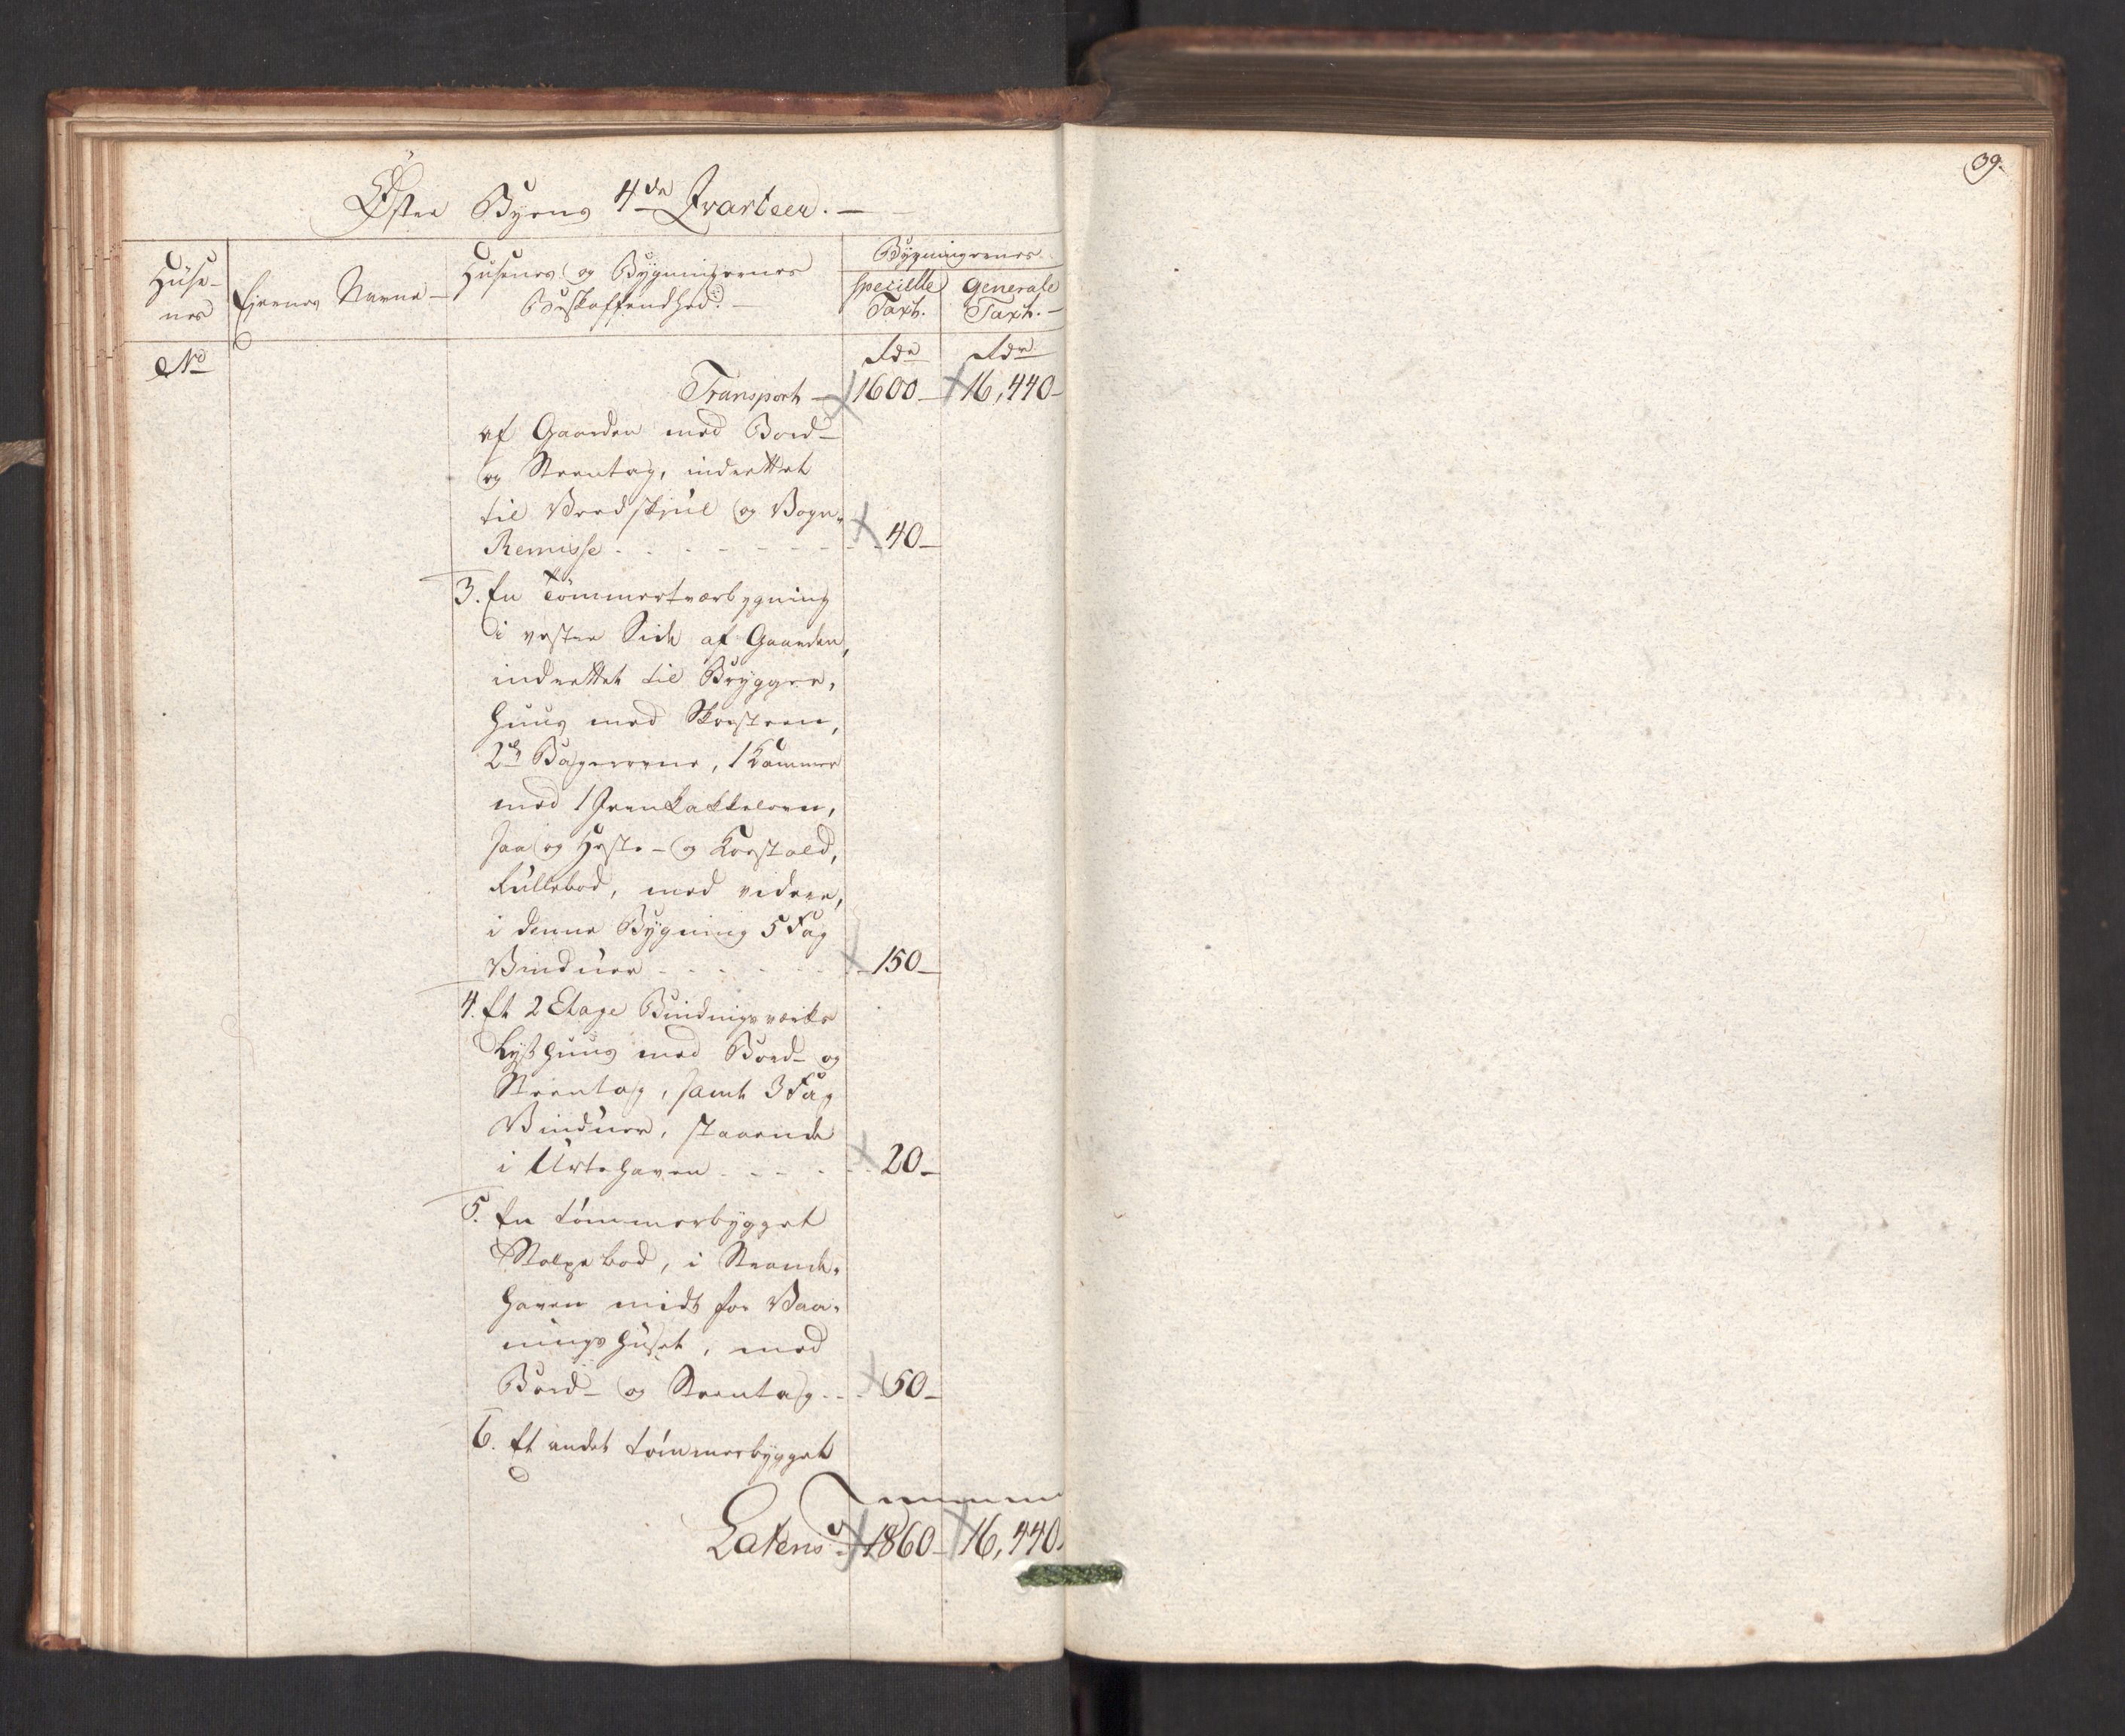 Øster Byens 4de Qvarteer. —
Huse-
nes
Ejernes Navne —
Husenes og Bygningernes
Beskaffendhed. —
Bygningernes
specielle
Taxt.
generale
Taxt. —
No
Rdr
Rdr
Transport — 1600 — 16,440 —
af Gaarden med Bord-
og Steentag, indrettet
til Vedskiul og Vogn-
Remisse - - - - - 40 —
3. En Tømmertværbygning
i vester Side af Gaarden,
indrettet til Brygger-
huus med Skorsteen,
2de Bagerovne, 1 Kammer
med 1 Jernkakkelovn,
saa og Heste- og Koestald,
Rullebod, med videre,
i denne Bygning 5 Fag
Vinduer - - - - - 150 —
4. Et 2 Etage Bindingsverks
Lysthuus med Bord- og
Steentag, samt 3 Fag
Vinduer, staaende
i Urtehaven - - - - 20 —
5. En tømmerbygget
Stolpebod, i Strand-
haven midt for Vaa-
ningshuset, med
Bord- og Steentag - - - 50 —
6. Et andet tømmerbygget
Latens 1860 — 16,440.
39.